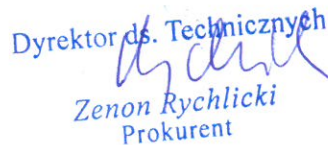 Dyrektor ds. Technicznych
Zenon Rychlicki
Prokurent